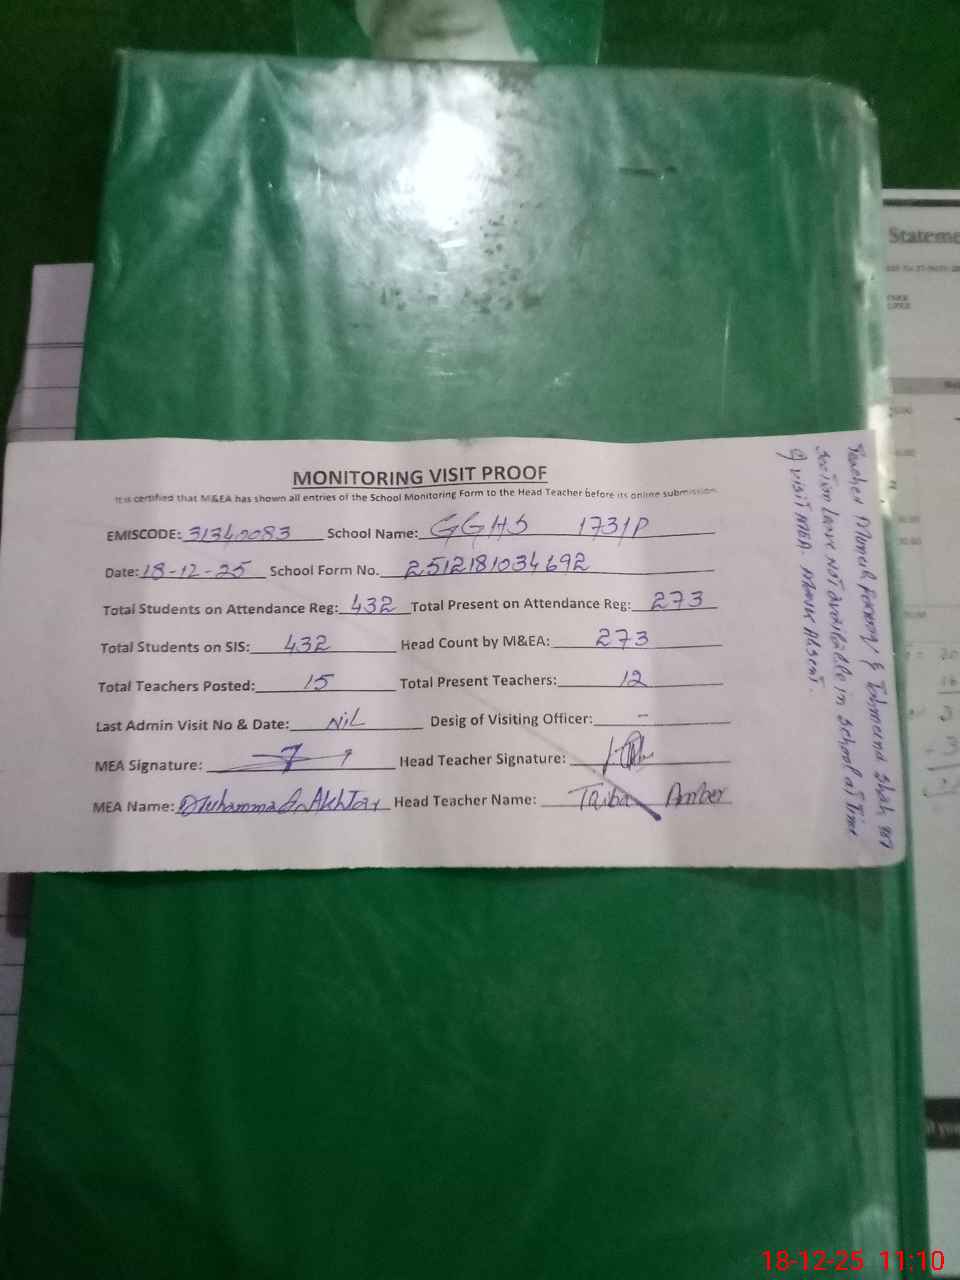 MONITORING VISIT PROOF
It is certified that M&EA has shown all entries of the School Monitoring Form to the Head Teacher before its online submission
EMISCODE: 31340083 School Name: GGHS 173/P
Date: 18-12-25 School Form No. 2512181034692
Total Students on Attendance Reg: 432 Total Present on Attendance Reg: 273
Total Students on SIS: 432 Head Count by M&EA: 273
Total Teachers Posted: 15 Total Present Teachers: 12
Last Admin Visit No & Date: NiL Desig of Visiting Officer: -
MEA Signature: Head Teacher Signature:
MEA Name: Muhammad Akhtar Head Teacher Name: Taiba Amber
Teacher & Tahmeena Shah
Leave not available in school at time
of visit MEA. Mark Absent.
Stateme
18-12-25 11:10